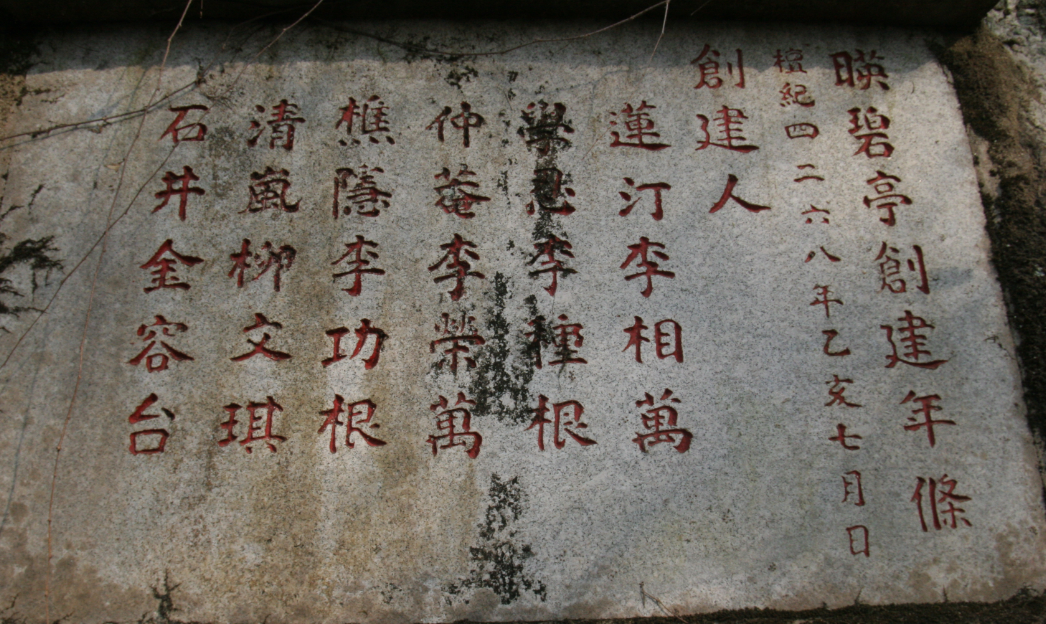 暎碧亭創建年條
檀紀四二六八年乙亥七月日
創建人
蓮汀李相萬
學李種根
仲菴李榮萬
樵隱李功根
清嵐柳文琪
石井金容台